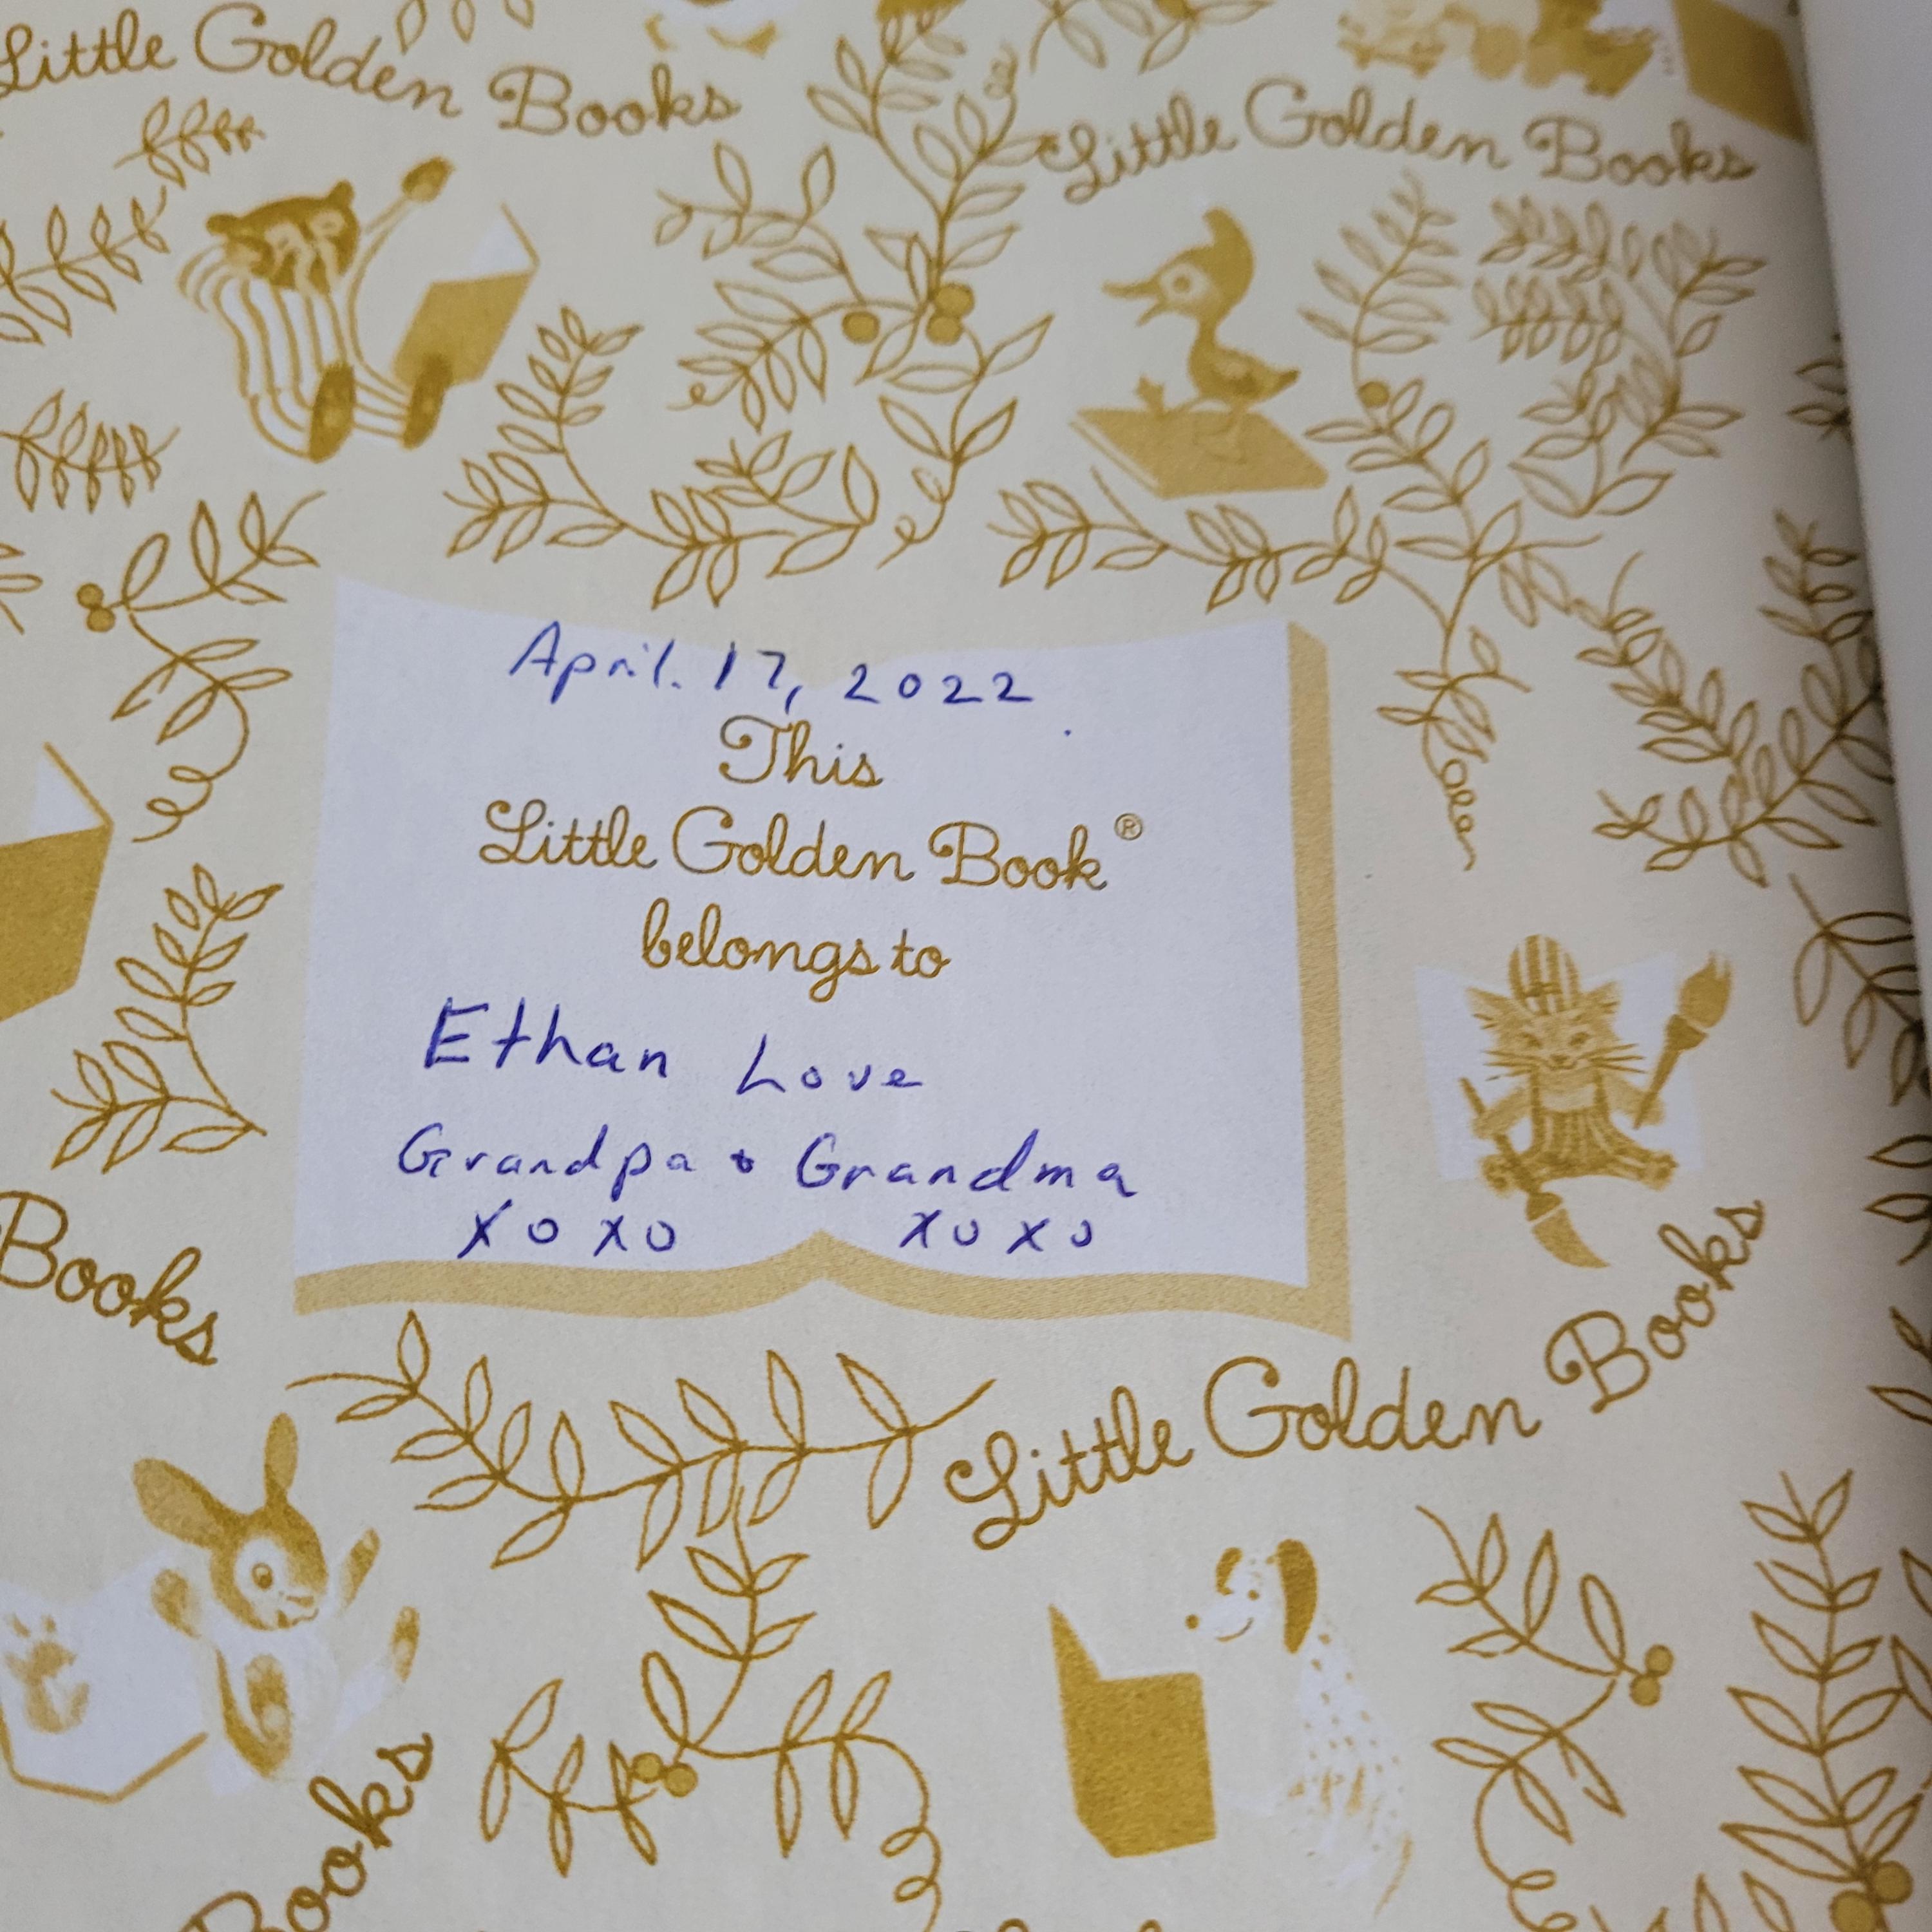 Little Golden Books
Little Golden Books
April. 17, 2022
This
Little Golden Book®
belongs to
Ethan Love
Grandpa + Grandma
xoxo xoxo
Books
Little Golden Books
Books